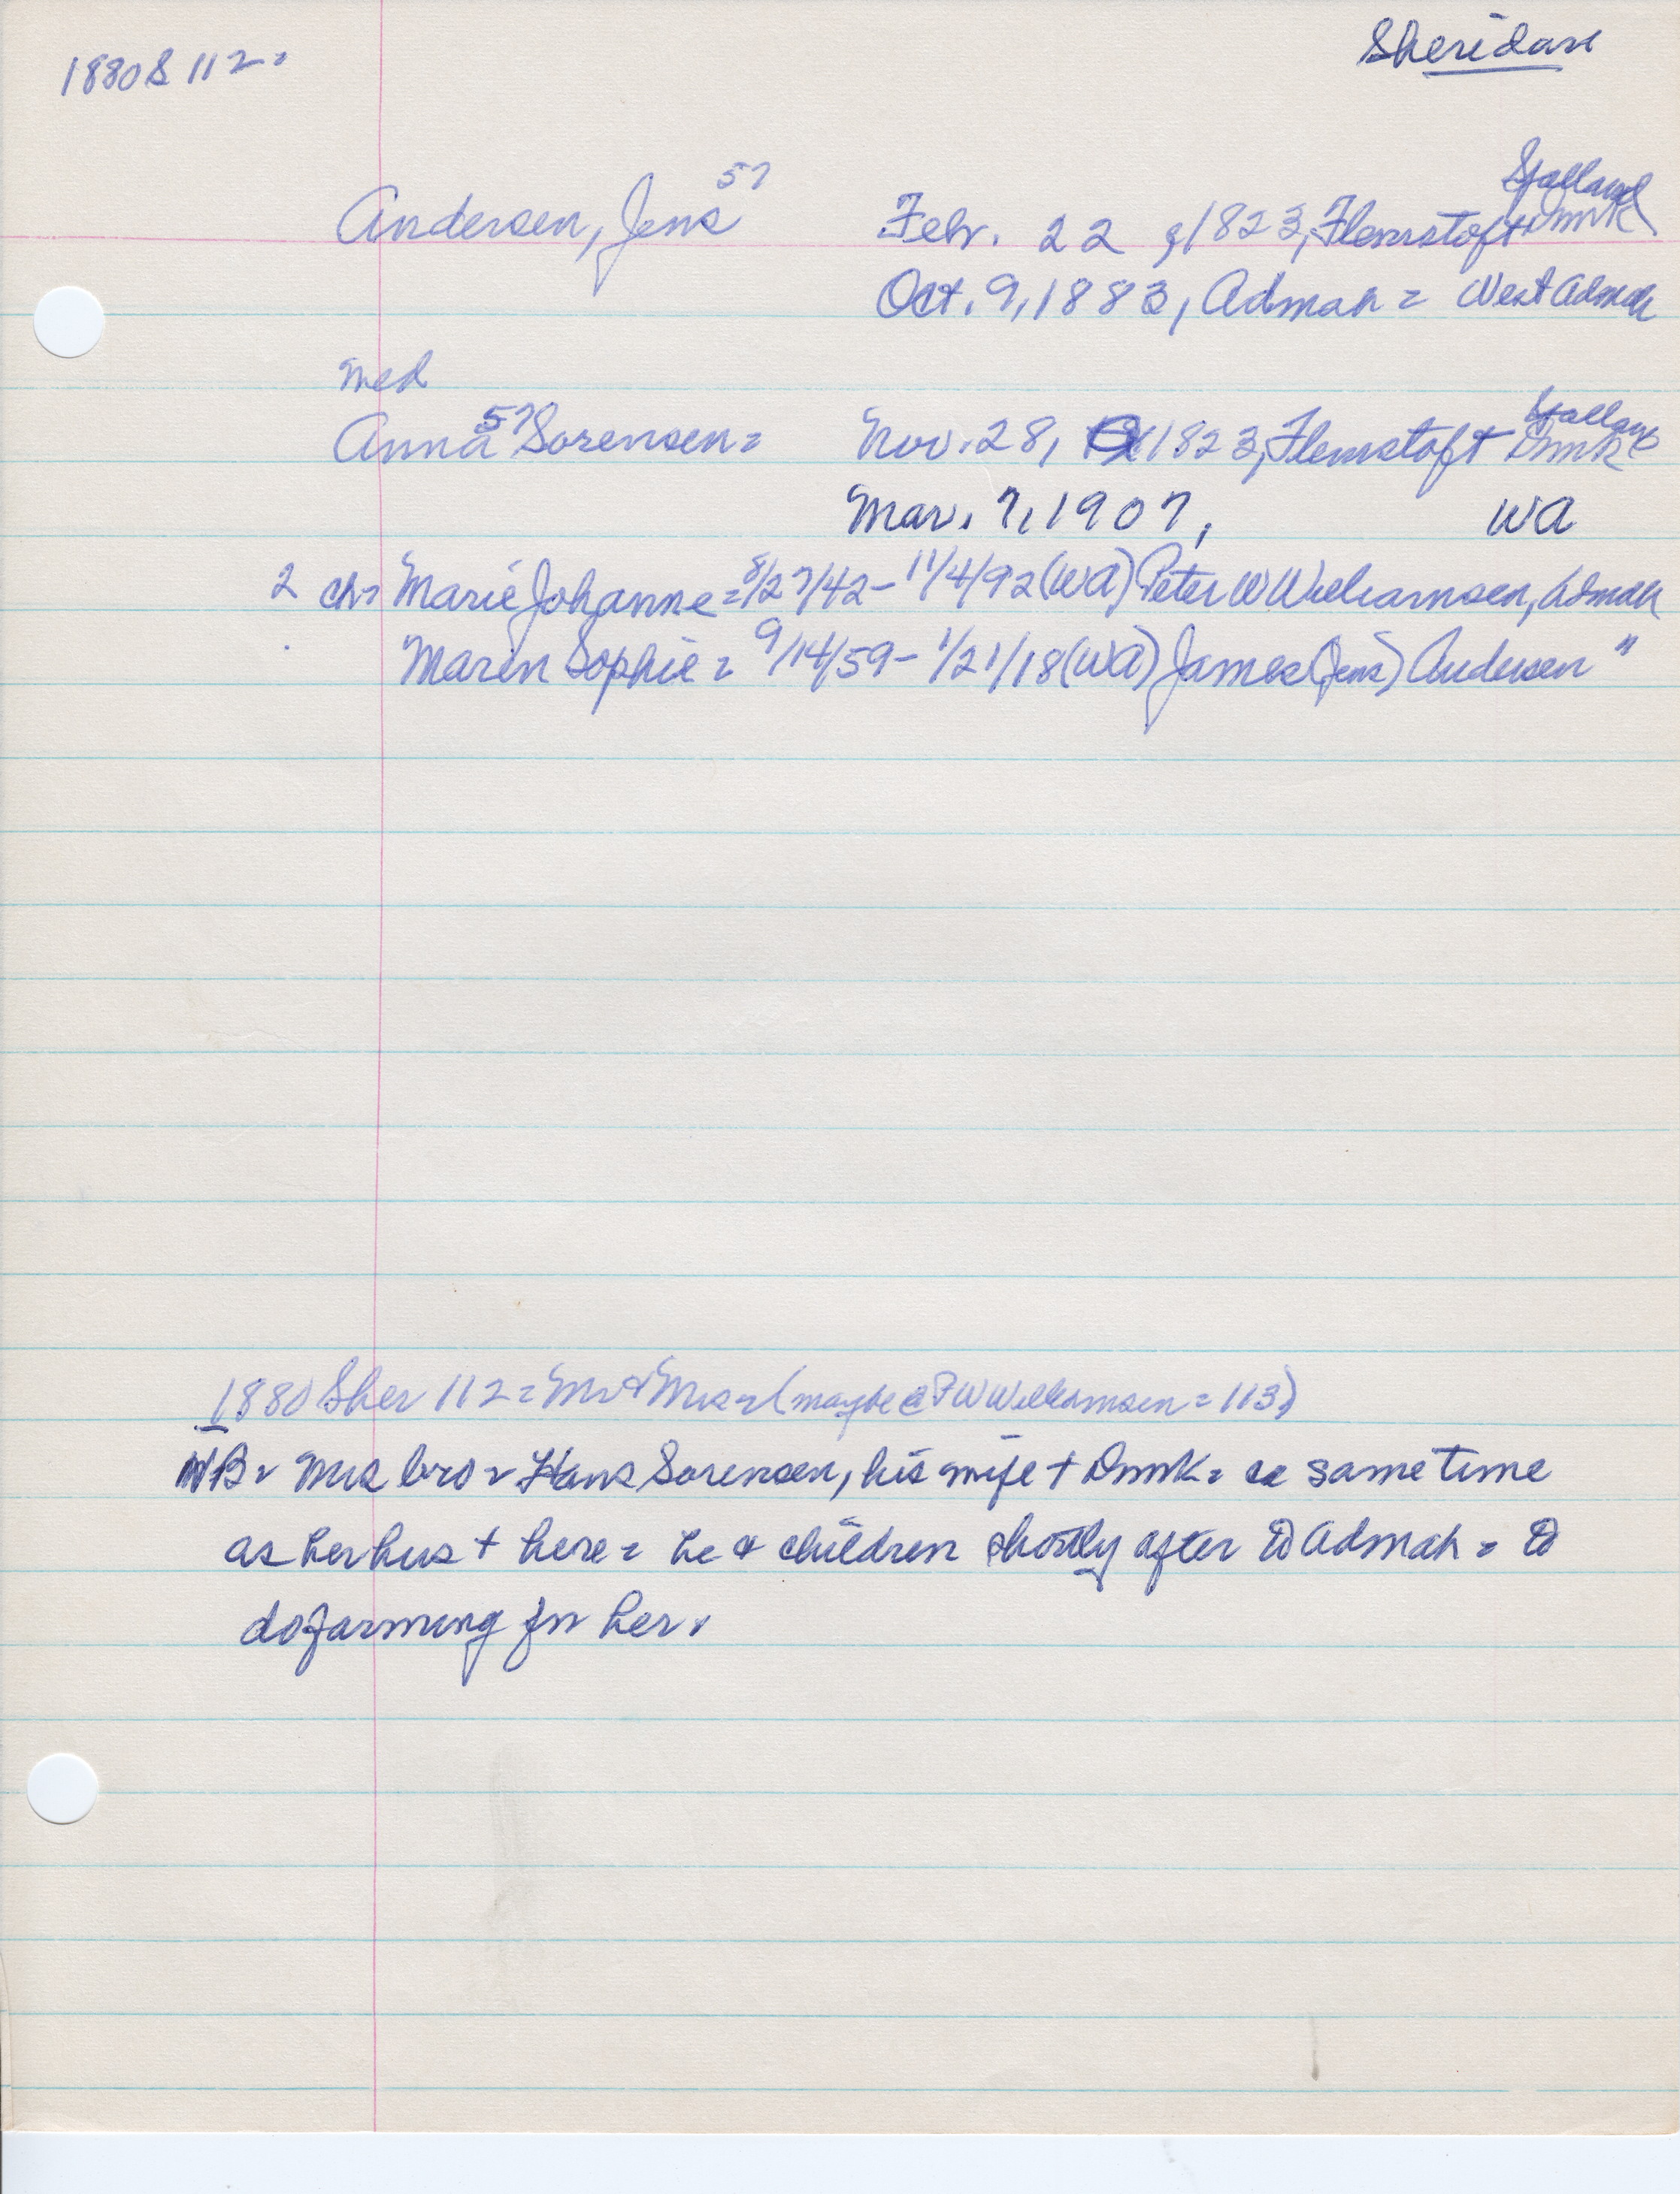 1880 S 112 =
Sheridan
Andersen, Jens 57
Febr. 22, 1823, Flemstoft Sjalland Dmrk
Oct. 9, 1883, Admah = West Admah
med
Anna 57 Sorensen =
Nov. 28, 1823, Flemstoft Sjalland Dmrk
Mar. 7, 1907, WA
2 ch = Marie Johanne = 8/27/42 - 11/4/92 (WA) Peter W Williamsen, Admah
Maren Sophie = 9/14/59 - 1/21/18 (WA) James (Jens) Andersen "
1880 Sher 112 = Mr & Mrs = (maybe @ PW Williamsen = 113)
NB = Mrs bro = Hans Sorensen, his wife + Dmrk = same time
as her hus + here = he & children shortly after to Admah = to
do farming for her.